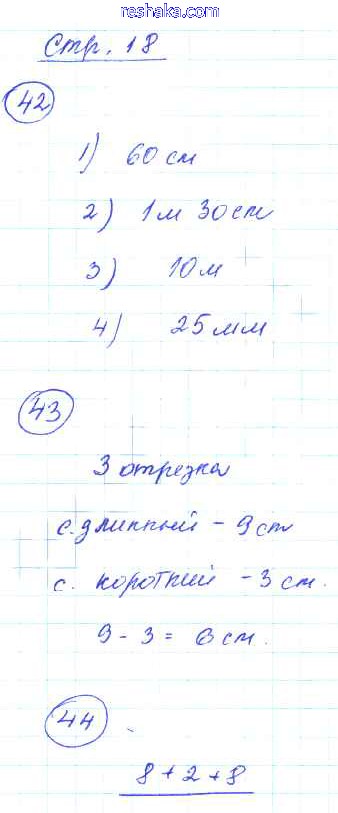 reshaka.com
Стр. 18
42
1) 60 см
2) 1 м 30 см
3) 10 м
4) 25 мм
43
3 отрезка
с. длинный - 9 см
с. короткий - 3 см.
9 - 3 = 6 см.
44
8 + 2 + 8